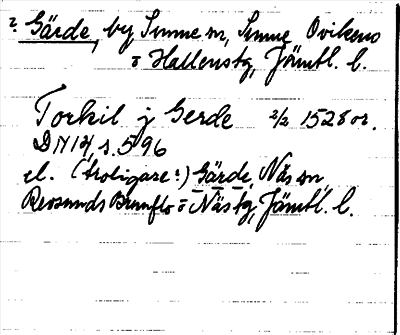 ? Gärde, by Sunne sn, Sunne Ovikens
o Hallenstg, Jämtl. l.
Torkil j Gerde 2/2 1528 or.
DN 14, s. 596
el. (troligare?) Gärde, Näs sn,
Revsunds Brunflo o Nästg, Jämtl. l.